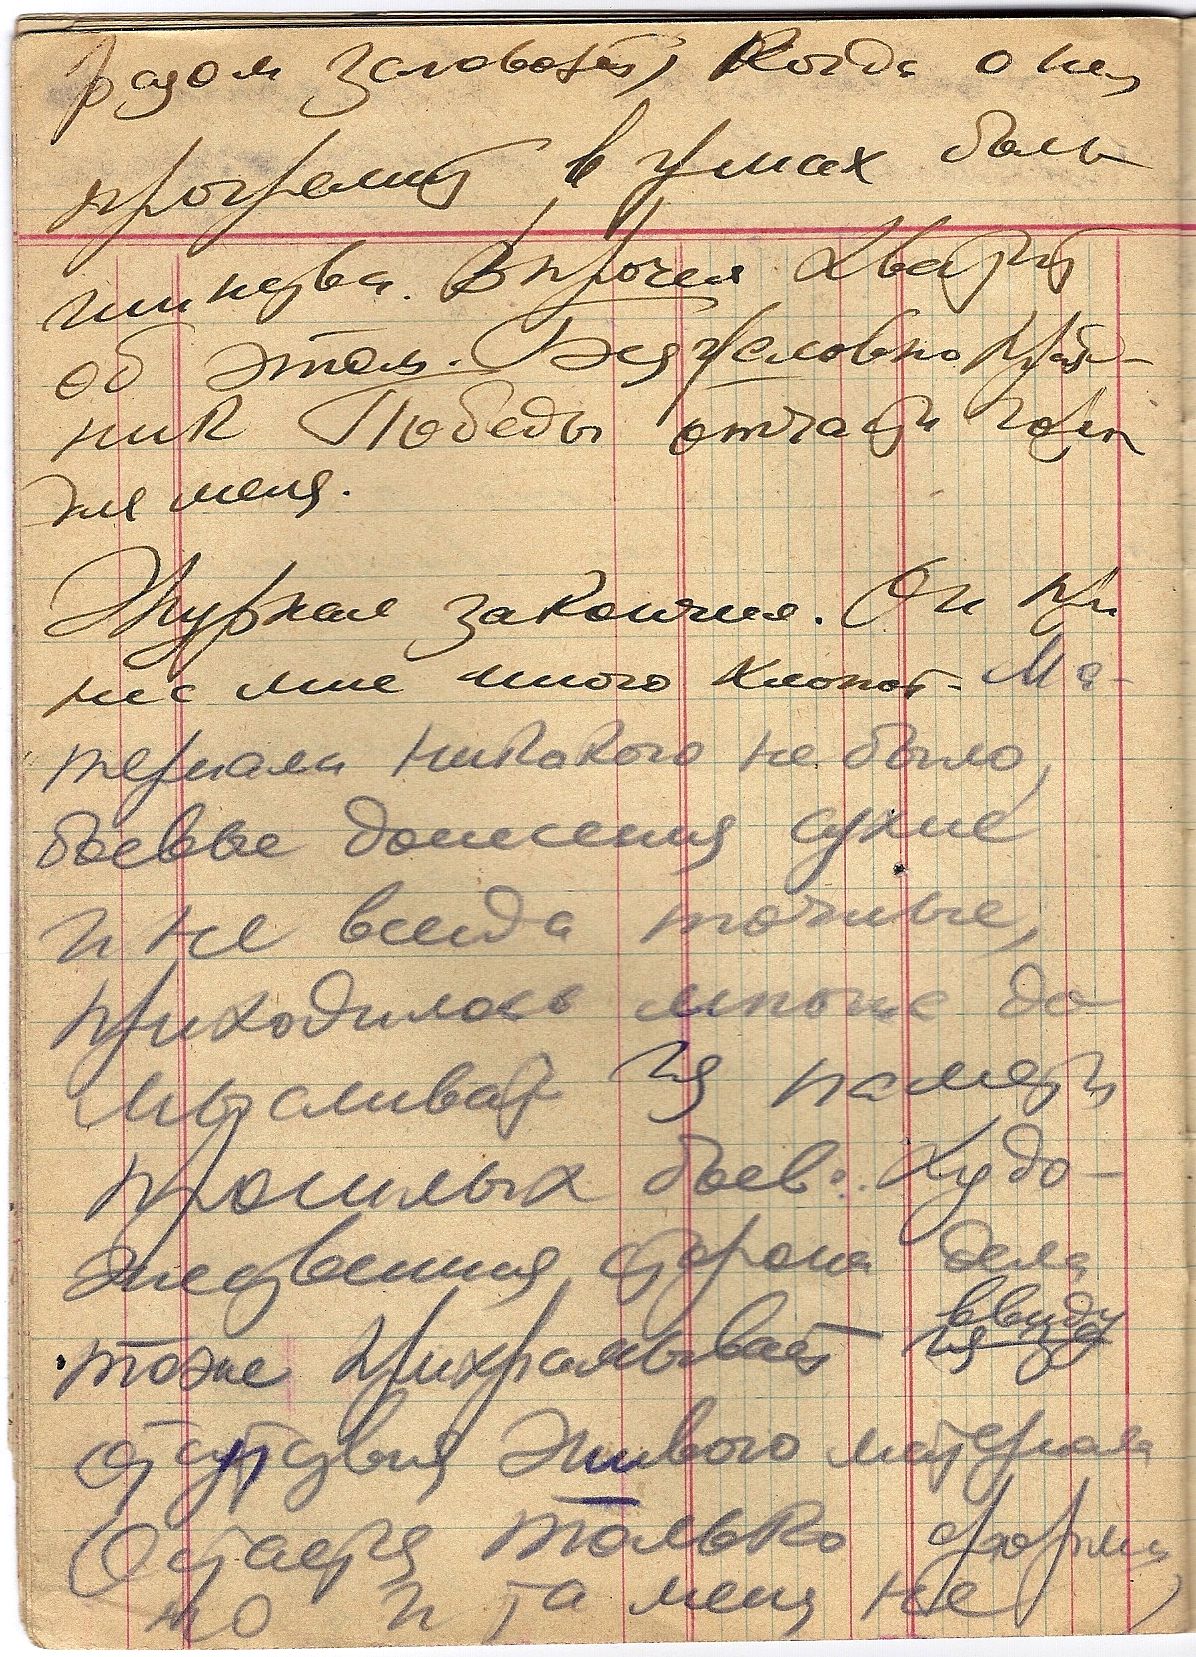 разом заговорят, когда о ней
программа в умах боль-
шинства. Впрочем хватит
об этом. Безусловно, празд-
ник Победы отчасти горек
для меня.
Журнал закончил. Он при-
нес мне много хлопот. Ма-
териала никакого не было,
боевые донесения сухие
и не всегда точные,
приходилось многое до
мысливать из памяти
прошлых боев. Худо-
жественная сторона дела
тоже прихрамывает ввиду
отсутствия живого материала
Остается только форма,
но и та меня не